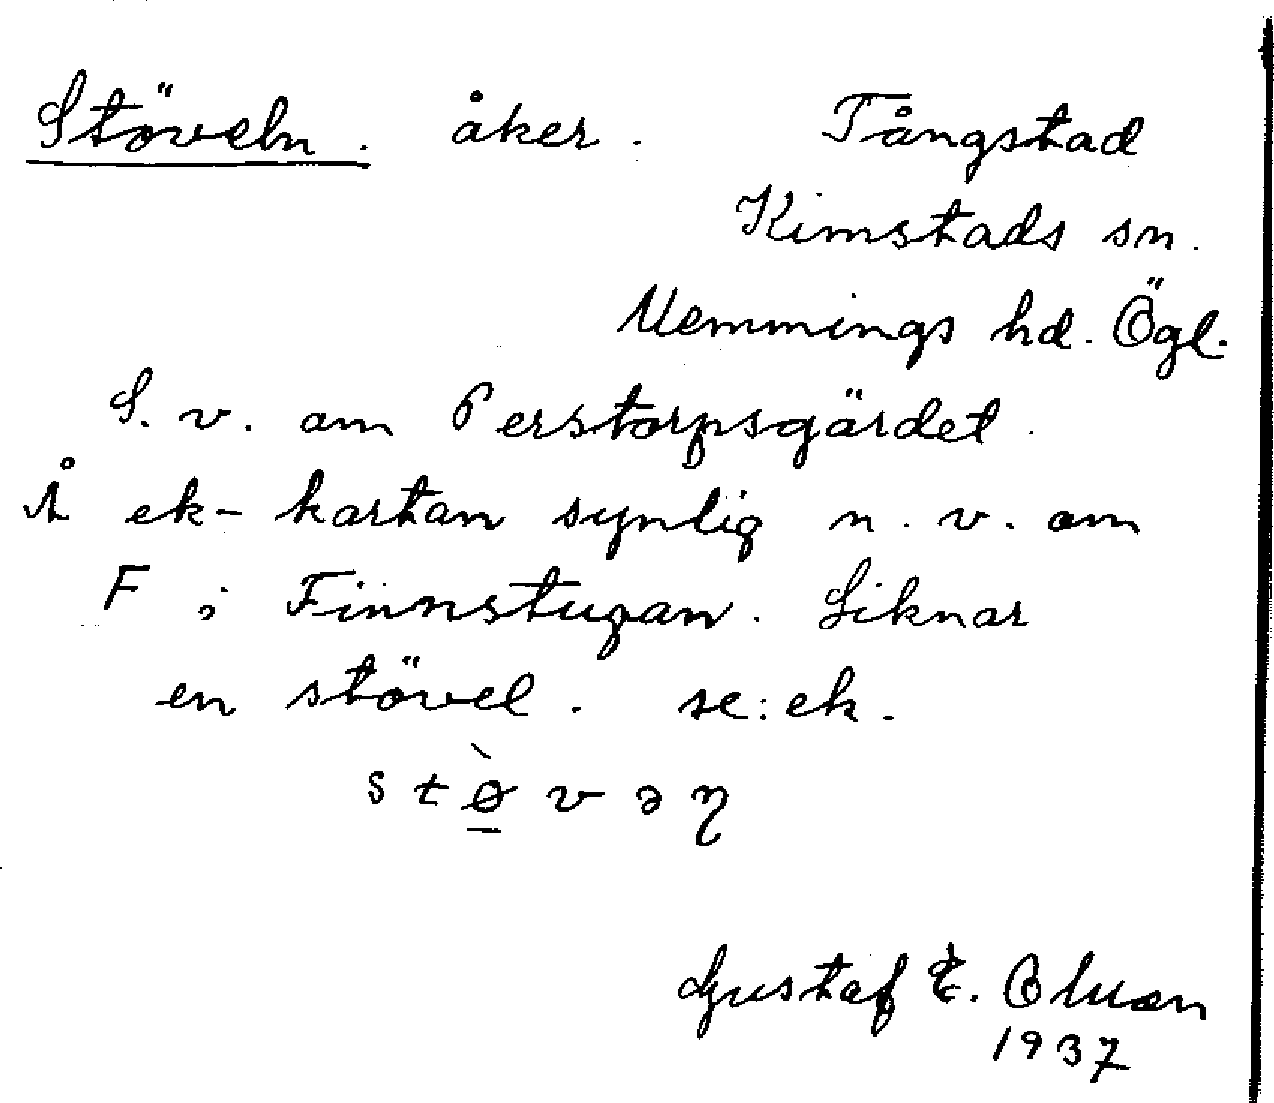 Stöveln. åker. Tångstad
Kimstads sn.
Memmings hd. Ögl.
S. v. om Perstorpsgärdet.
Å ek-kartan synlig n. v. om
F i Finnstugan. Liknar
en stövel. se: ek.
s t ø̠̀ v ə η
Gustaf E.
1937